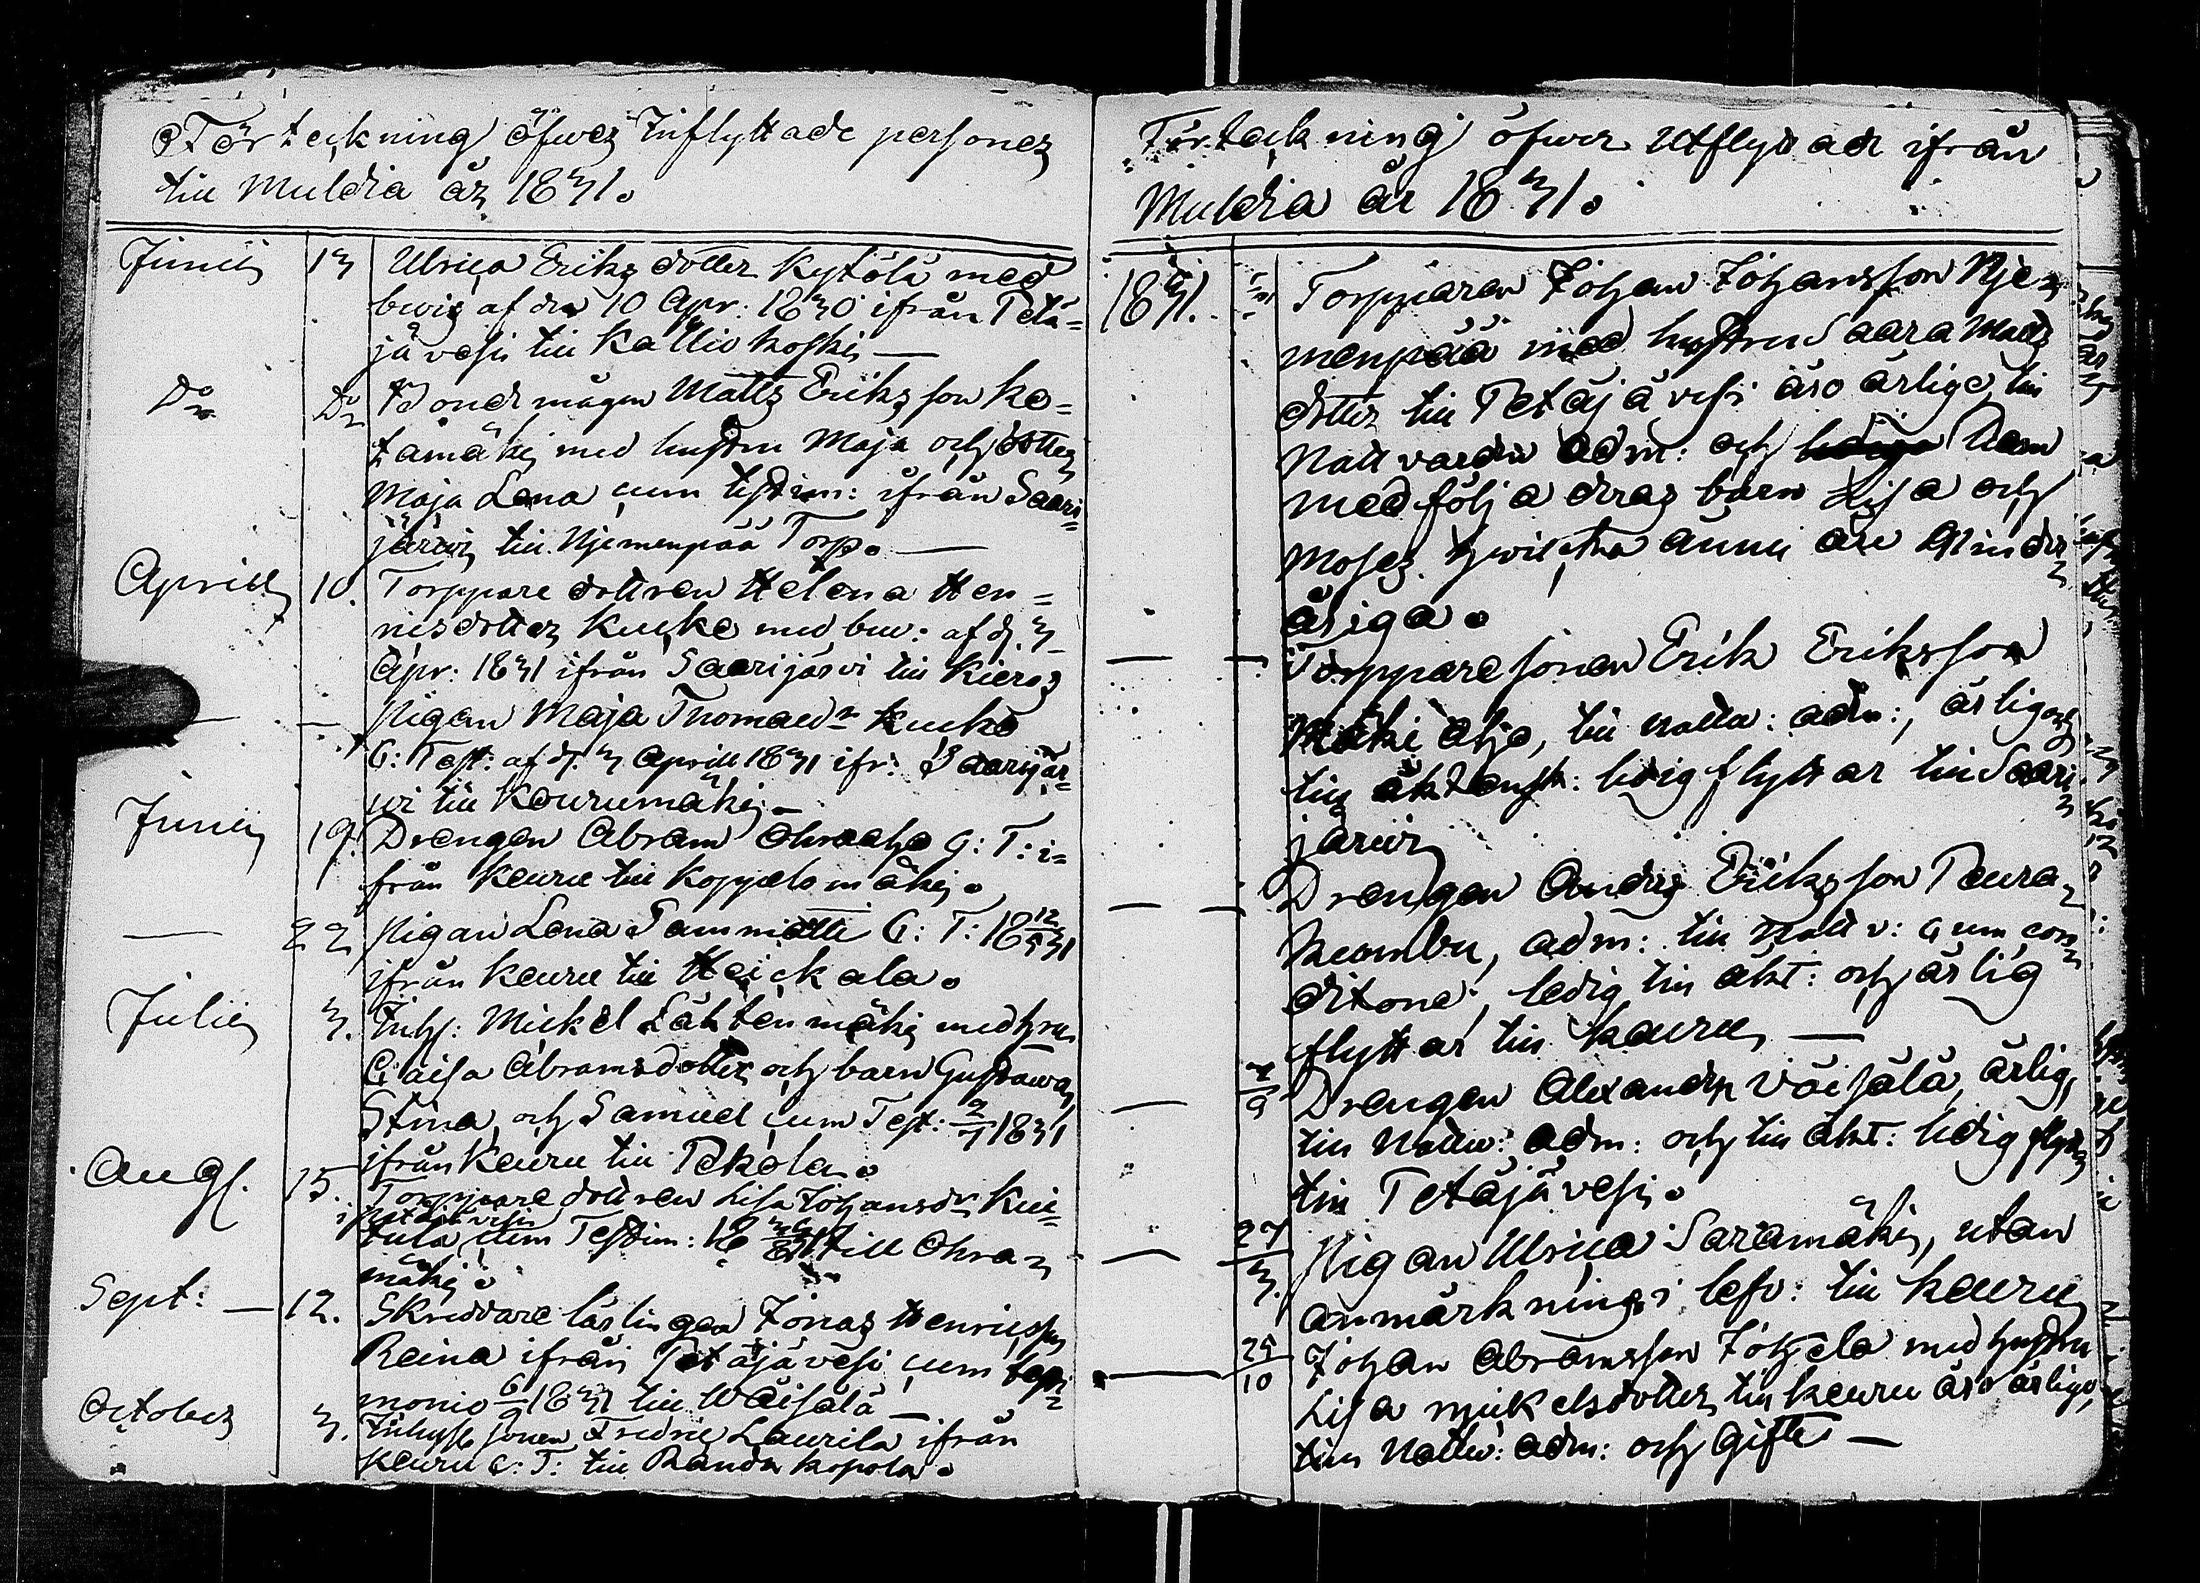 Förteckning öfwer Inflyttade personer
till Muldia år 1831.
Junii 13 Ulrica Eriksdotter Kytölä med
bewis af den 10 Apr: 1830 ifrån Petä=
jävesi till Kalliokoski —
Do Do Bondemågen Matts Eriksson Ko=
tamäki med hustru Maja och dotter
Maja Lena cum testim: ifrån Saari=
järwi till Njemenpää Torp. —
Aprill 10. Torppare dottren Helena Hen=
nisdotter Kucko med bew: af d. 3
Apr: 1831 ifrån Saarijärvi till
— — Pigan Maja Thomaedr Kucko
C: Test: af d. 3 Aprill 1831 ifr: Saarijär=
wi till Kourumäki —
Junii 19. Drengen Abram Ohraaho C: T: i=
från Keuru till Koppelomäki.
— 22 Pigan Lena Tammiotti C: T: 18 12/5 31
ifrån Keuru till Heickala.
Julii 3. Inhs: Mickel Lähtenmäki med hru
Caisa Abramsdotter och barn Gustawa,
Stina, och Samuel cum Test: 2/7 1831
ifrån Keuru till Pekola.
Augs. 15. Torppare dottren Lisa Johansdr Kui=
ifr: Petäjävesi
tula cum Testim: till Ohra=
mäki.
Sept: — 12. Skreddare lärlingen Jonas Henricsson
Reina ifrån Petäjävesi cum testi=
monio 6/9 1831 till Wäisälä —
October 3. Inhyses sonen Fredric Laurila ifrån
Keuru C: T: till Randa Kopola.
Förteckning öfwer Utflyttade ifrån
Muldia år 1831.
1831. Torpparen Johan Johansson Nje=
menpää med hustru Saara Matts
dotter till Petäjävesi äro ärlige, till
Nattvarden adm: och Dem
medfölja deras barn Lisa och
Moses. hwilcka ännu äro Minder=
åriga.
— — Torppare sonen Erik Eriksson
Mäkiaho, till nattw: adm:, ärlig och
till äktensk: ledig flyttar till Saari=
järwi
— — Drengen Anders Eriksson Peura=
Kumbu, adm: till Nattv: cum con=
ditione, ledig till äkt: och ärlig
flyttar till Keuru —
— 7/9 Drengen Alexander Väisälä, ärlig,
till Nattw: adm: och till äkt: ledig flytt=
till Petäjävesi.
— 27/3. Pigan Ulrica Saramäki, utan
anmärkning i lefv: till Keuru
— 29/10 Johan Abramsson Johela med hustru
Lisa Mickelsdotter till Keuru äro ärlige,
till Nattw: adm: och Gifte —